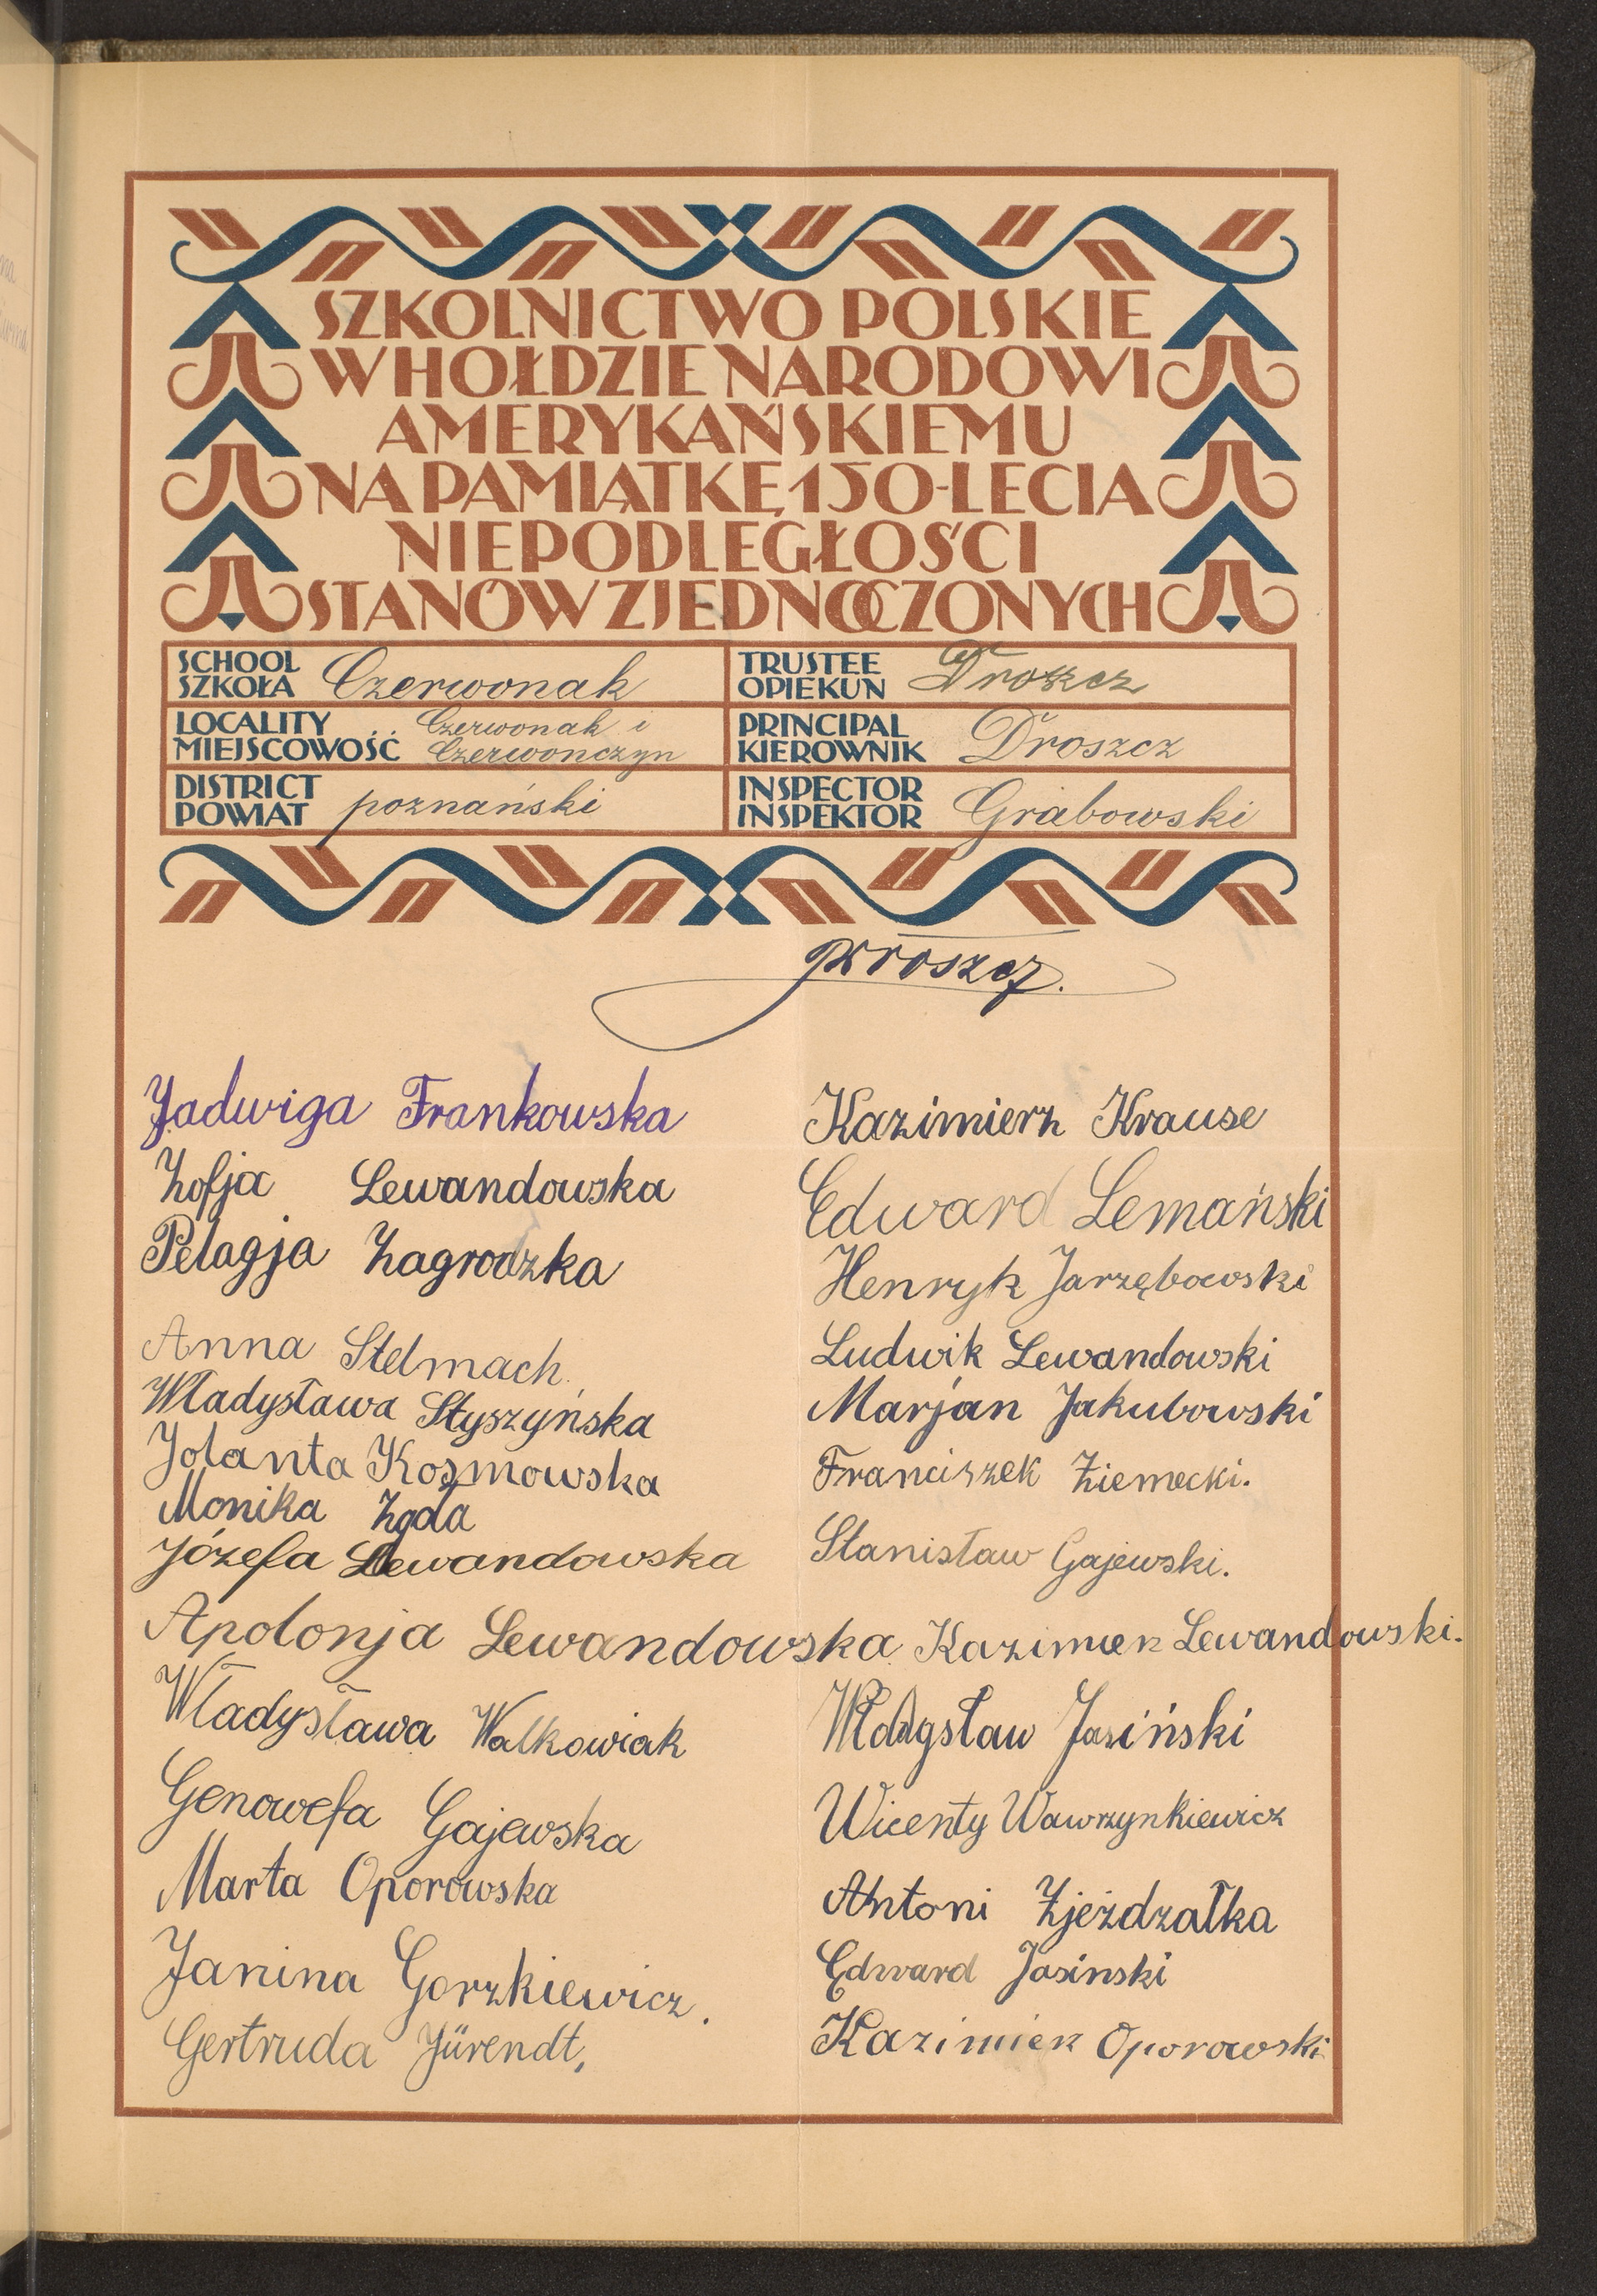 SZKOLNICTWO POLSKIE
W HOŁDZIE NARODOWI
AMERYKAŃSKIEMU
NA PAMIĄTKĘ 150-LECIA
NIEPODLEGŁOŚCI
STANÓW ZJEDNOCZONYCH
SCHOOL
SZKOŁA Czerwonak
TRUSTEE
OPIEKUN Droszcz
LOCALITY Czerwonak i
MIEJSCOWOŚĆ Czerwonczyn
PRINCIPAL
KIEROWNIK Droszcz
DISTRICT
POWIAT poznański
INSPECTOR
INSPEKTOR Grabowski
Droszcz.
Jadwiga Frankowska
Zofja Lewandowska
Pelagja Zagrodzka
Anna Stelmach.
Władysława Styszyńska
Jolanta Kozmowska
Monika Zgoła
Józefa Lewandowska
Apolonja Lewandowska
Władysława Walkowiak
Genowefa Gajewska
Marta Oporowska
Janina Gorzkiewicz.
Gertruda Jürendt,
Kazimierz Krause
Edward Lemański
Henryk Jarzębowski
Ludwik Lewandowski
Marjan Jakubowski
Franciszek Ziemecki.
Stanisław Gajewski.
Kazimierz Lewandowski.
Władysław Jasiński
Wicenty Wawrzynkiewicz
Antoni Zjeżdzałka
Edward Jasinski
Kazimierz Oporowski